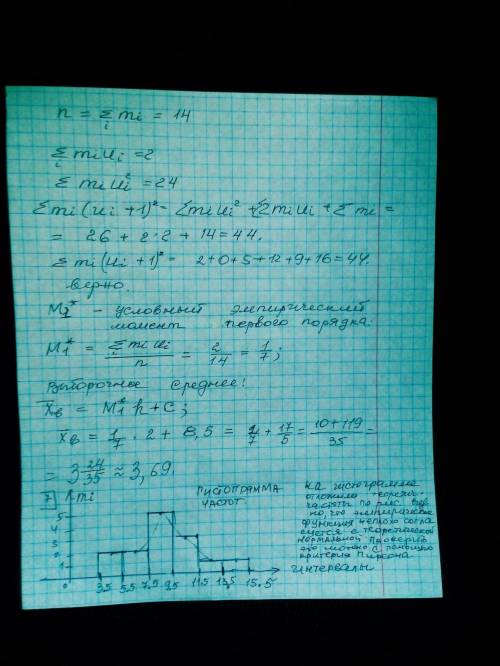 n = Σ mi = 14
i
Σ mi ui = 2
i
Σ mi ui² = 24
Σ mi (ui + 1)² = Σ mi ui² + Σ2 mi ui + Σ mi =
= 26 + 2·2 + 14 = 44.
Σ mi (ui + 1)² = 2+0+5+12+9+16 = 44.
верно.
M1* - условный эмпирический
момент первого порядка:
M1* = Σ mi ui / n = 2/14 = 1/7;
Выборочное среднее:
x̄в = M1* h + C;
x̄в = 1/7 · 2 + 8,5 = 2/7 + 17/5 = (10+119)/35 =
= 3 24/35 ≈ 3,69.
7 mi
гистограмма
частот.
5
4
3
2
1
0
3.5 5.5 7.5 9.5 11.5 13.5 15.5
интервалы
на гистограмме
отложило теорети-
частоты по рис. вид
но, что эмпирическая
функция неплохо согла
суется с теоретической
нормальной Проверить
это можно с помощью
критерия Пирсона